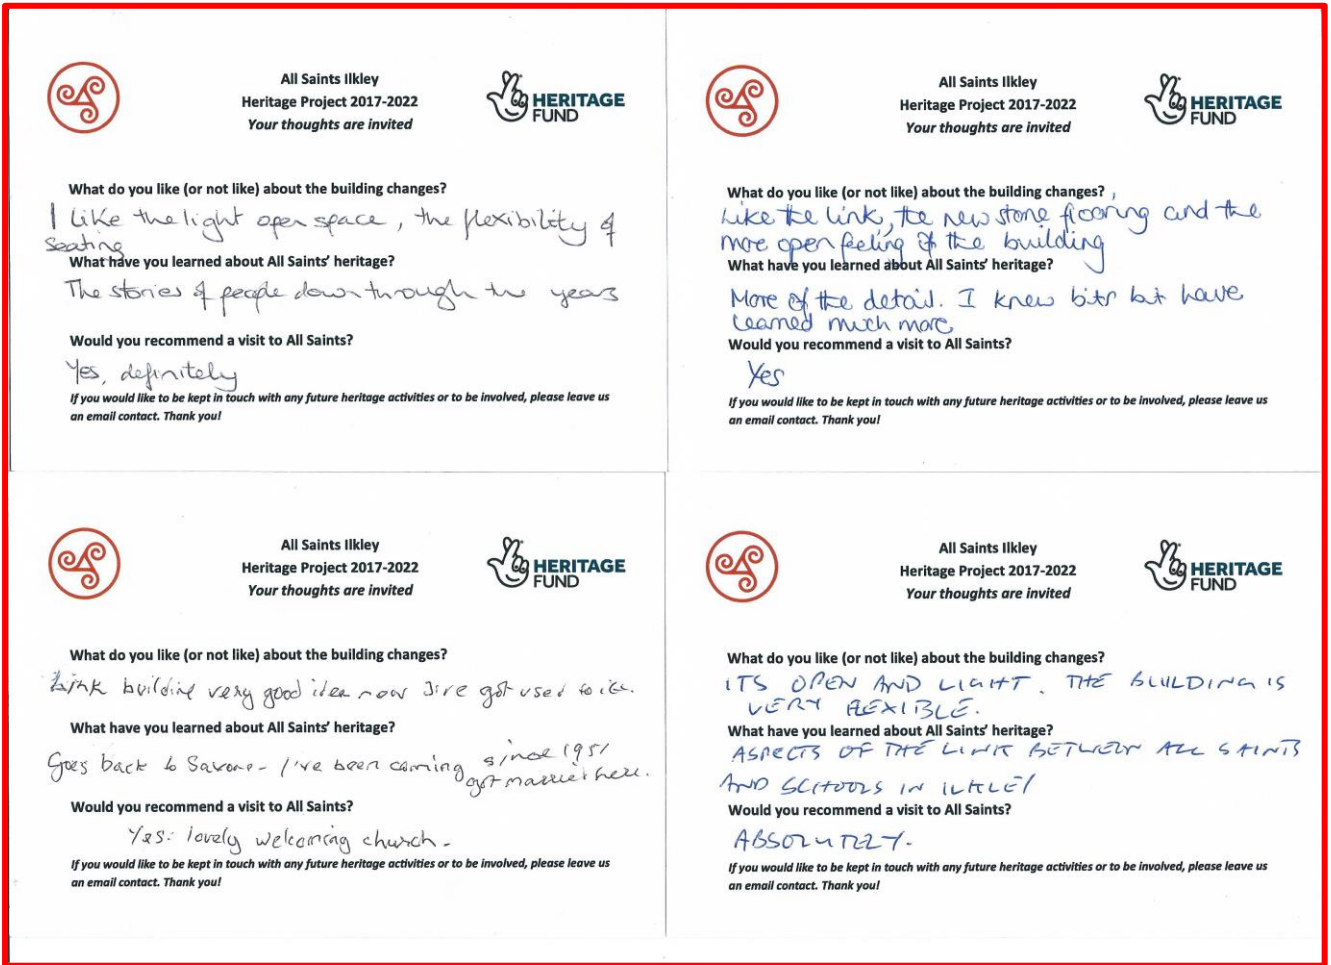 All Saints Ilkley
Heritage Project 2017-2022
Your thoughts are invited
HERITAGE
FUND
What do you like (or not like) about the building changes?
I like the light open space, the flexibility of
seating
What have you learned about All Saints' heritage?
The stories of people down through the years
Would you recommend a visit to All Saints?
Yes, definitely
If you would like to be kept in touch with any future heritage activities or to be involved, please leave us
an email contact. Thank you!
All Saints Ilkley
Heritage Project 2017-2022
Your thoughts are invited
HERITAGE
FUND
What do you like (or not like) about the building changes?
Like the link, the new stone flooring and the
more open feeling of the building
What have you learned about All Saints' heritage?
More of the detail. I knew bits but have
learned much more
Would you recommend a visit to All Saints?
Yes
If you would like to be kept in touch with any future heritage activities or to be involved, please leave us
an email contact. Thank you!
All Saints Ilkley
Heritage Project 2017-2022
Your thoughts are invited
HERITAGE
FUND
What do you like (or not like) about the building changes?
Link building very good idea now I've got used to it.
What have you learned about All Saints' heritage?
Goes back to - I've been coming since 1951
got married here.
Would you recommend a visit to All Saints?
Yes: lovely welcoming church.
If you would like to be kept in touch with any future heritage activities or to be involved, please leave us
an email contact. Thank you!
All Saints Ilkley
Heritage Project 2017-2022
Your thoughts are invited
HERITAGE
FUND
What do you like (or not like) about the building changes?
ITS OPEN AND LIGHT. THE BUILDING IS
VERY FLEXIBLE.
What have you learned about All Saints' heritage?
ASPECTS OF THE LINK BETWEEN ALL SAINTS
AND SCHOOLS IN ILKLEY
Would you recommend a visit to All Saints?
ABSOLUTELY.
If you would like to be kept in touch with any future heritage activities or to be involved, please leave us
an email contact. Thank you!